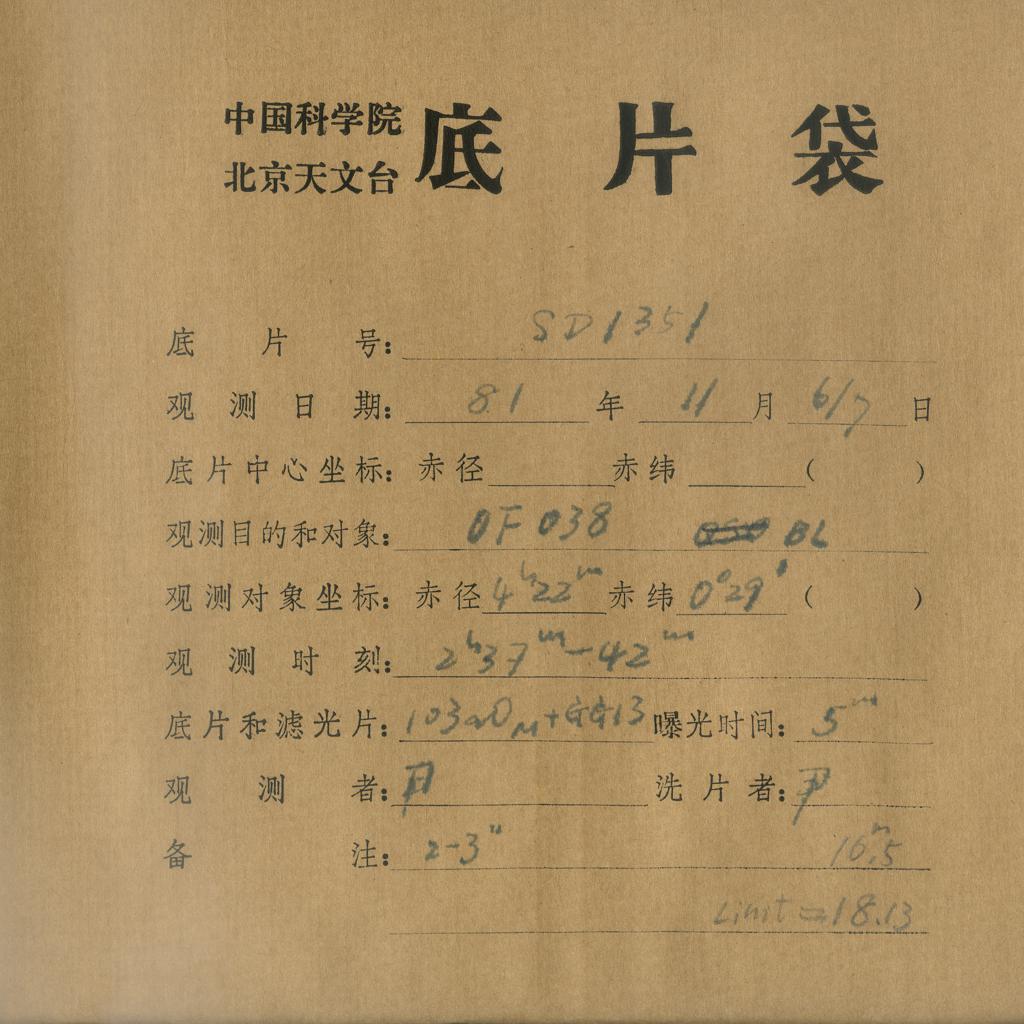 中国科学院
北京天文台
底片袋
底片号: SD1351
观测日期: 81年11月6/7日
底片中心坐标: 赤径 赤纬 ( )
观测目的和对象: OF 038 BL
观测对象坐标: 赤径4ʰ22ᵐ赤纬0°29′ ( )
观测时刻: 2ʰ37ᵐ-42ᵐ
底片和滤光片: 103aO + GG13 曝光时间: 5ᵐ
观测者: 洗片者:
备注: 2-3″ 16ᵐ.5
Limit=18.13